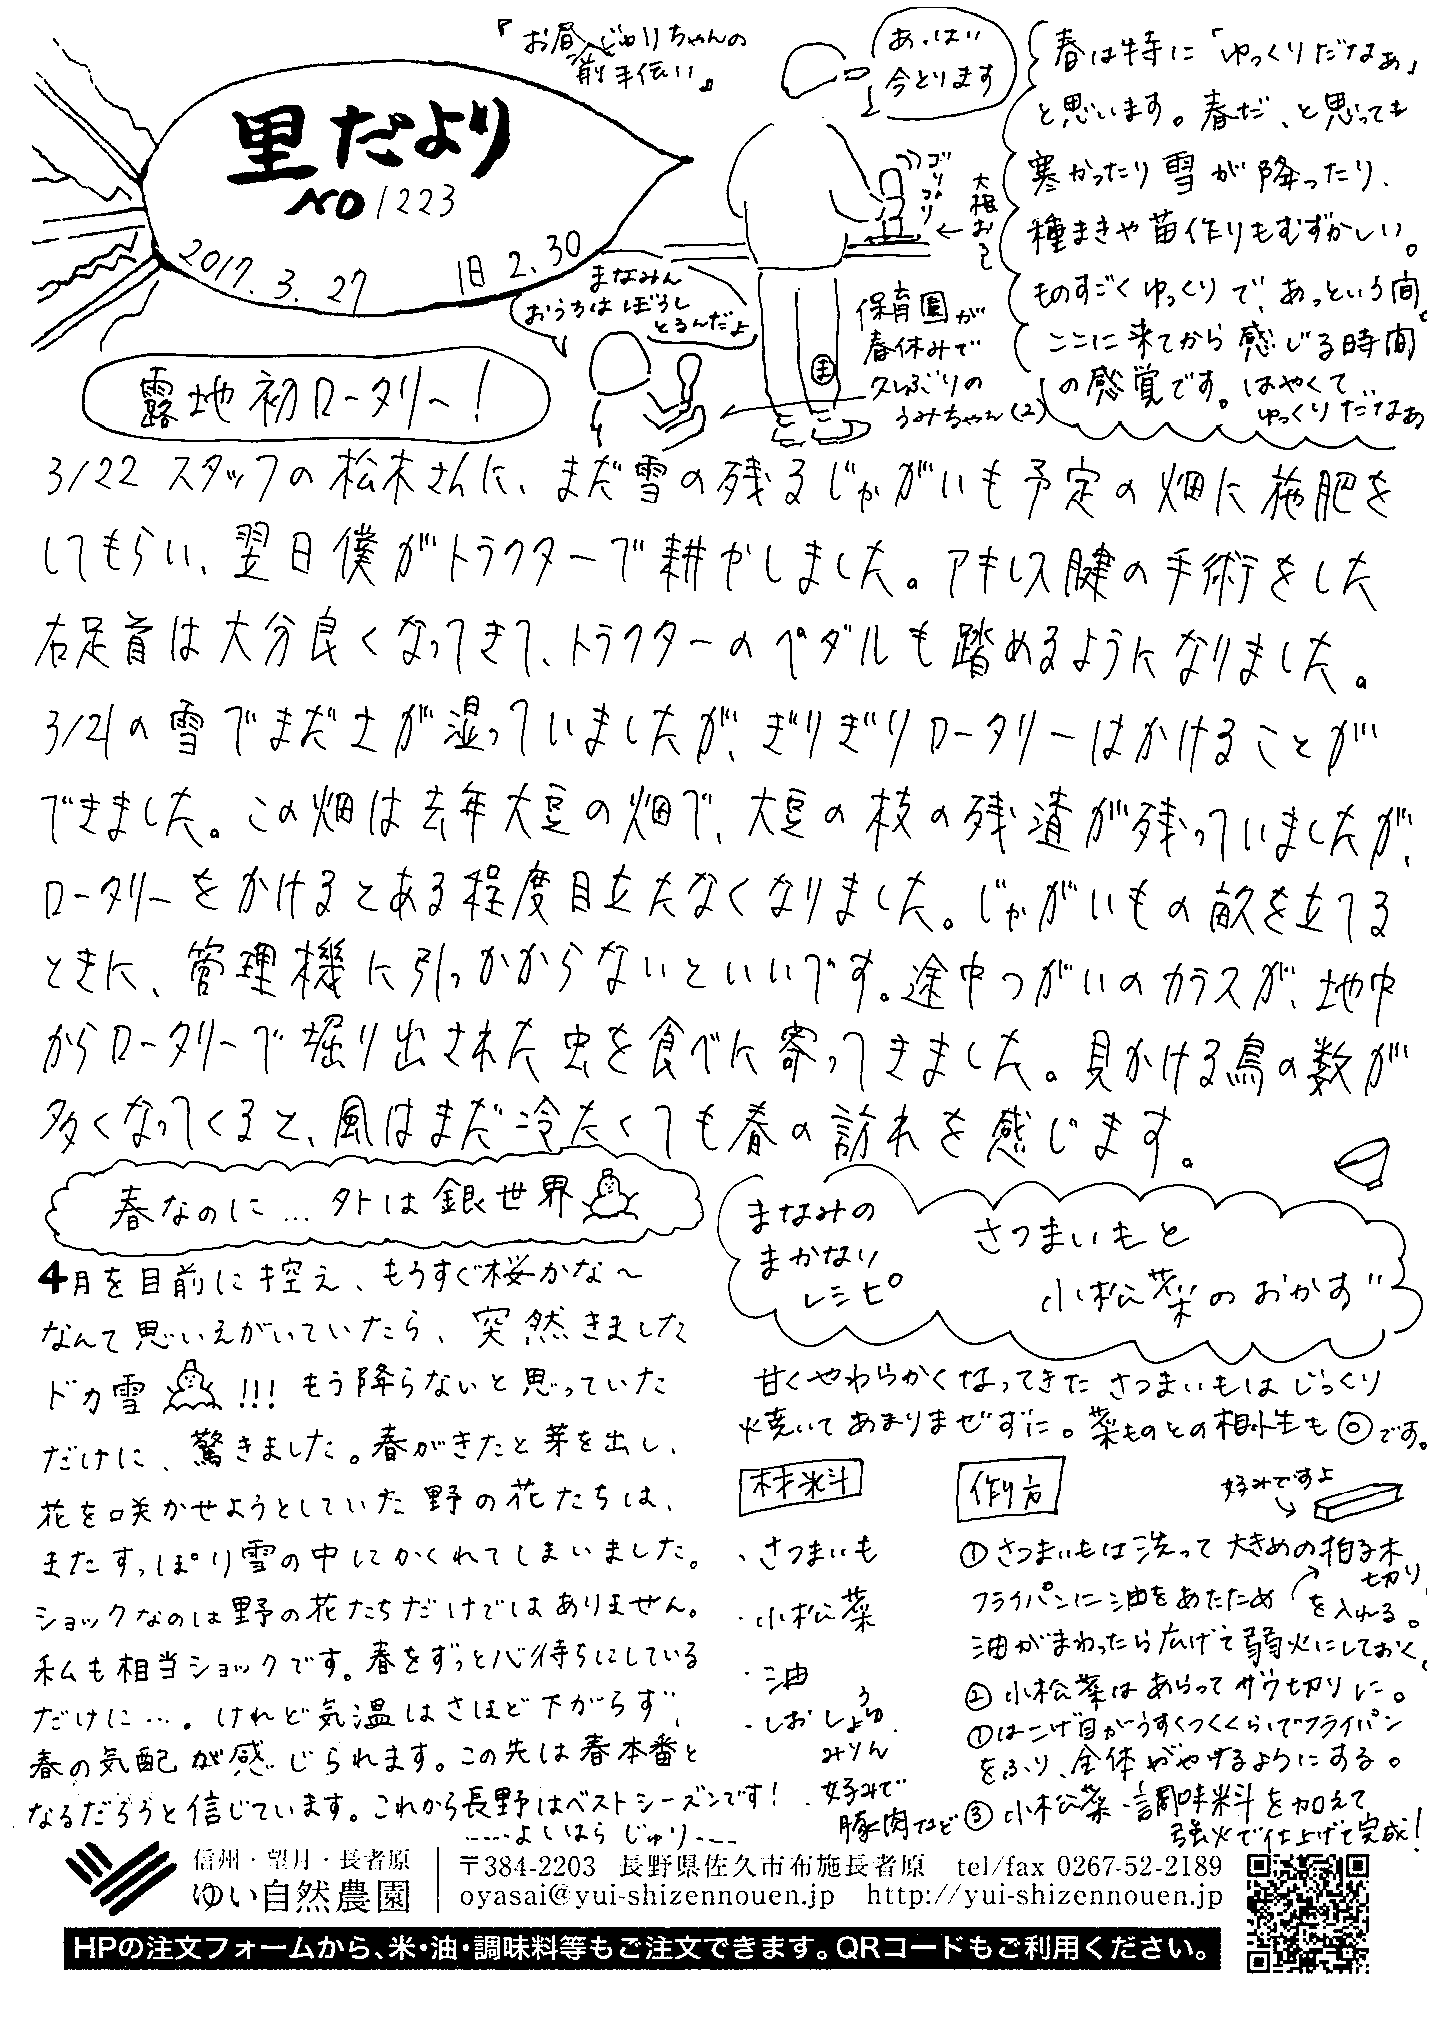 里だより
NO1223
2017.3.27 1日2,30
『お昼前 じゅりちゃんの
お手伝い』
あ、はい
今とります
ゴリゴリ
大根おろし
まなみん
おうちは ぼうし
とるんだよ
保育園が
春休みで
久しぶりの
うみちゃん(2)
春は特に「ゆっくりだなぁ」
と思います。春だ、と思っても
寒かったり雪が降ったり、
種まきや苗作りもむずかしい。
ものすごくゆっくりで、あっという間。
ここに来てから感じる時間
の感覚です。はやくて
ゆっくりだなあ
露地初ロータリー!
3/22 スタッフの松木さんに、まだ雪の残るじゃがいも予定の畑に施肥を
してもらい、翌日僕がトラクターで耕かしました。アキレス腱の手術をした
右足首は大分良くなってきて、トラクターのペダルも踏めるようになりました。
3/21の雪でまだ土が湿っていましたが、ぎりぎりロータリーはかけることが
できました。この畑は去年大豆の畑で、大豆の枝の残渣が残っていましたが、
ロータリーをかけるとある程度目立たなくなりました。じゃがいもの畝を立てる
ときに、管理機に引っかからないといいです。途中つがいのカラスが、地中
からロータリーで堀り出された虫を食べに寄ってきました。見かける鳥の数が
多くなってくると、風はまだ冷たくても春の訪れを感じます。
春なのに…外は銀世界
4月を目前に控え、もうすぐ桜かな〜
なんて思いえがいていたら、突然きました
ドカ雪 !!! もう降らないと思っていた
だけに、驚きました。春がきたと芽を出し、
花を咲かせようとしていた野の花たちは、
またすっぽり雪の中にかくれてしまいました。
ショックなのは野の花たちだけではありません。
私も相当ショックです。春をずっと心待ちにしている
だけに…。けれど気温はさほど下がらず、
春の気配が感じられます。この先は春本番と
なるだろうと信じています。これから長野はベストシーズンです!
----よしはら じゅり---
まなみの
まかない
レシピ
さつまいもと
小松菜のおかず
甘くやわらかくなってきたさつまいもはじっくり
焼いてあまりまぜずに。菜ものとの相性も◎です。
材料
・さつまいも
・小松菜
・油
・しお しょうゆ
みりん
・好みで
豚肉など
作り方
好みですよ
①さつまいもは洗って大きめの拍子木
切り
フライパンに油をあたため を入れる。
油がまわったら広げて弱火にしておく。
②小松菜はあらってザク切りに。
①はこげ目がうすくつくくらいでフライパン
をふり、全体がやけるようにする。
③小松菜・調味料を加えて
強火で仕上げて完成!
信州・望月・長者原
ゆい自然農園
〒384-2203 長野県佐久市布施長者原 tel/fax 0267-52-2189
oyasai@yui-shizennouen.jp http://yui-shizennouen.jp
HPの注文フォームから、米・油・調味料等もご注文できます。QRコードもご利用ください。